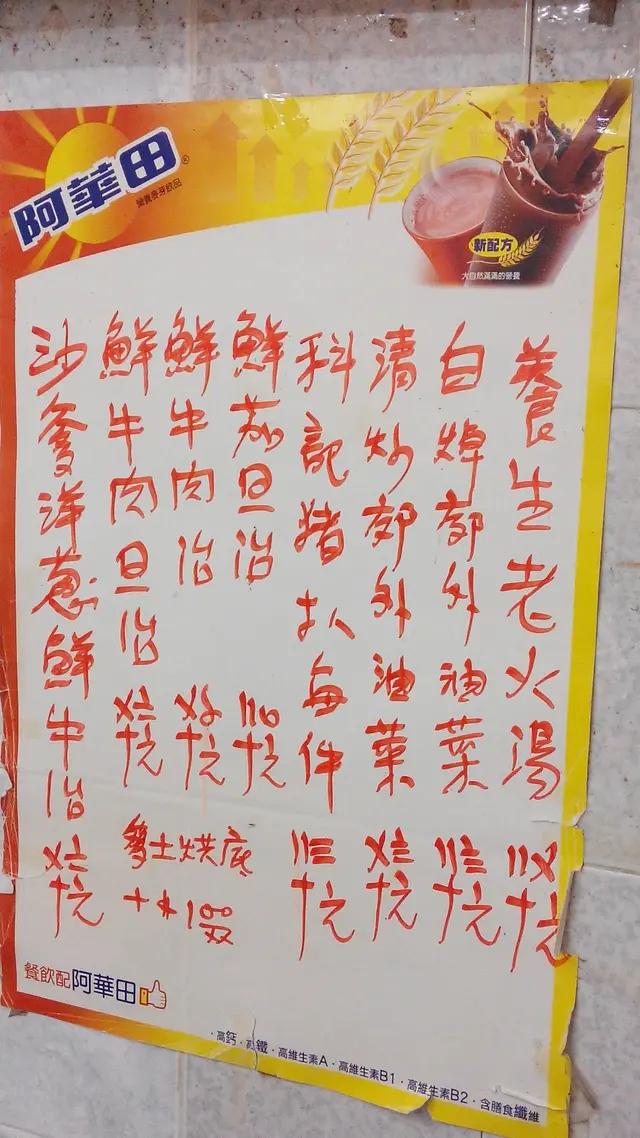 阿華田
營養麥芽飲品
新配方
大自然滿滿的營養
養生老火湯 〢〤十元
白焯郊外油菜 〢三十元
清炒郊外油菜 〤二十元
科記猪扒每件 〢三十元
鮮茄旦治 十元
鮮牛肉治 十元
鮮牛肉旦治 十元
沙爹洋葱鮮牛治 十元
多士烘底
餐飲配阿華田
·高鈣·高鐵·高維生素A·高維生素B1·高維生素B2·含膳食纖維